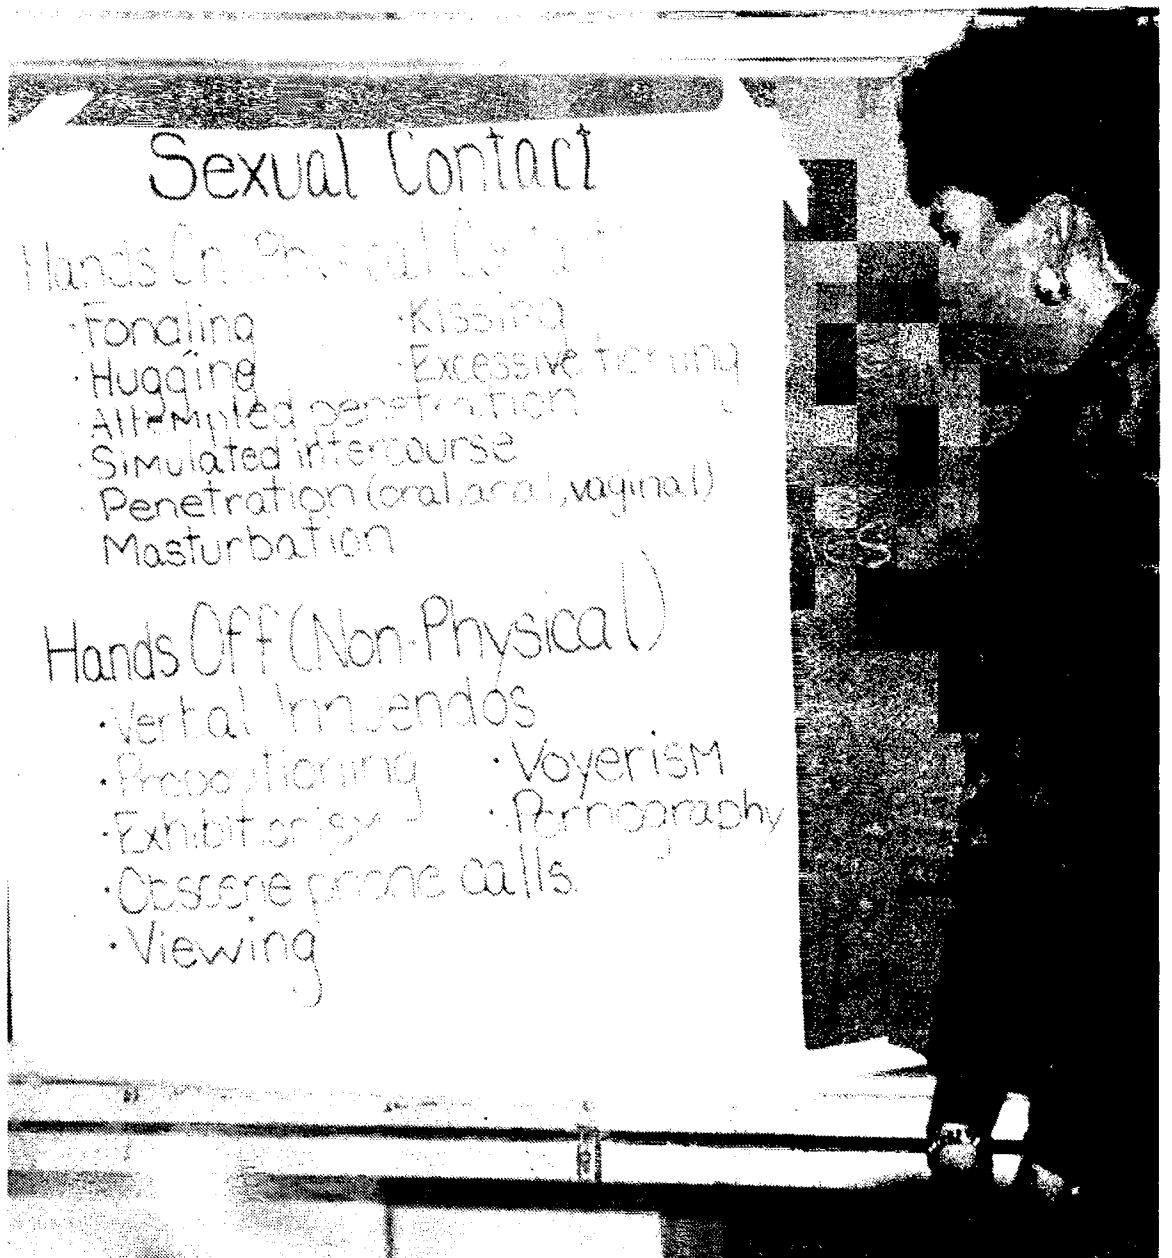 Sexual Contact
Hands On (Physical Contact)
·Fondling ·Kissing
·Hugging ·Excessive
·Attempted penetration
·Simulated intercourse
·Penetration (oral, anal, vaginal)
Masturbation
Hands Off (Non-Physical)
·Verbal Innuendos
·Propositioning ·Voyerism
·Exhibitionism ·Pornography
·Obscene phone calls.
·Viewing